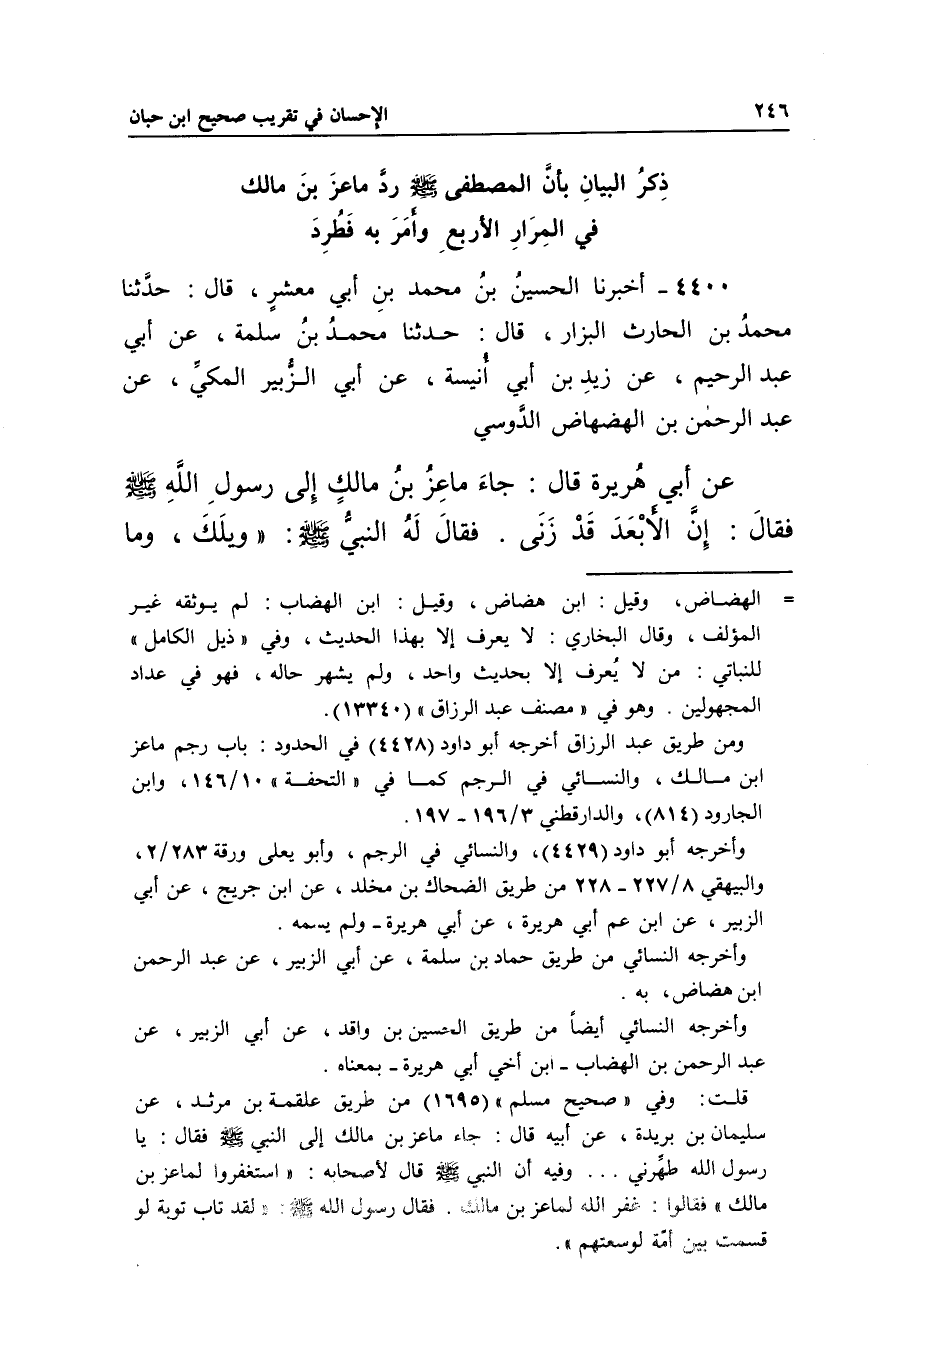 ٢٤٦
الإحسان في تقريب صحيح ابن حبان
ذِكرُ البيانِ بأنَّ المصطفى ﷺ ردَّ ماعزَ بنَ مالك
في المِرَارِ الأربعِ وأَمَرَ به فَطُرِدَ
٤٤٠٠ ـ أخبرنا الحسينُ بنُ محمد بنِ أبي معشرٍ ، قال : حدَّثنا
محمدُ بن الحارث البزار ، قال : حدثنا محمدُ بنُ سلمة ، عن أبي
عبد الرحيم ، عن زيدِ بن أبي أُنيسة ، عن أبي الزُّبير المكيِّ ، عن
عبد الرحمٰن بن الهضهاض الدَّوسي
عن أبي هُريرة قال : جاءَ ماعِزُ بنُ مالكٍ إلى رسولِ اللَّهِ ﷺ
فقالَ : إنَّ الأَبْعَدَ قَدْ زَنَى . فقالَ لَهُ النبيُّ ﷺ: « ويلَكَ ، وما
= الهضاض، وقيل : ابن هضاض ، وقيل : ابن الهضاب : لم يوثقه غير
المؤلف ، وقال البخاري : لا يعرف إلا بهذا الحديث ، وفي « ذيل الكامل »
للنباتي : من لا يُعرف إلا بحديث واحد ، ولم يشهر حاله ، فهو في عداد
المجهولين . وهو في « مصنف عبد الرزاق » (١٣٣٤٠).
ومن طريق عبد الرزاق أخرجه أبو داود (٤٤٢٨) في الحدود : باب رجم ماعز
ابن مالك ، والنسائي في الرجم كما في « التحفة » ١٤٦/١٠، وابن
الجارود (٨١٤)، والدارقطني ١٩٦/٣ ـ ١٩٧ .
وأخرجه أبو داود (٤٤٢٩)، والنسائي في الرجم ، وأبو يعلى ورقة ٢/٢٨٣ ،
والبيهقي ٢٢٧/٨ ـ ٢٢٨ من طريق الضحاك بن مخلد ، عن ابن جريج ، عن أبي
الزبير ، عن ابن عم أبي هريرة ، عن أبي هريرة ـ ولم يسمه .
وأخرجه النسائي من طريق حماد بن سلمة ، عن أبي الزبير ، عن عبد الرحمن
ابن هضاض، به .
وأخرجه النسائي أيضاً من طريق الحسين بن واقد ، عن أبي الزبير ، عن
عبد الرحمن بن الهضاب ـ ابن أخي أبي هريرة ـ بمعناه .
قلت: وفي « صحيح مسلم » (١٦٩٥) من طريق علقمة بن مرثد ، عن
سليمان بن بريدة ، عن أبيه قال : جاء ماعز بن مالك إلى النبي ﷺ فقال : يا
رسول الله طهِّرني ... وفيه أن النبي ﷺ قال لأصحابه : « استغفروا لماعز بن
مالك » فقالوا : غفر الله لماعز بن مالك . فقال رسول الله ﷺ: « لقد تاب توبة لو
قسمت بين أمّة لوسعتهم ».